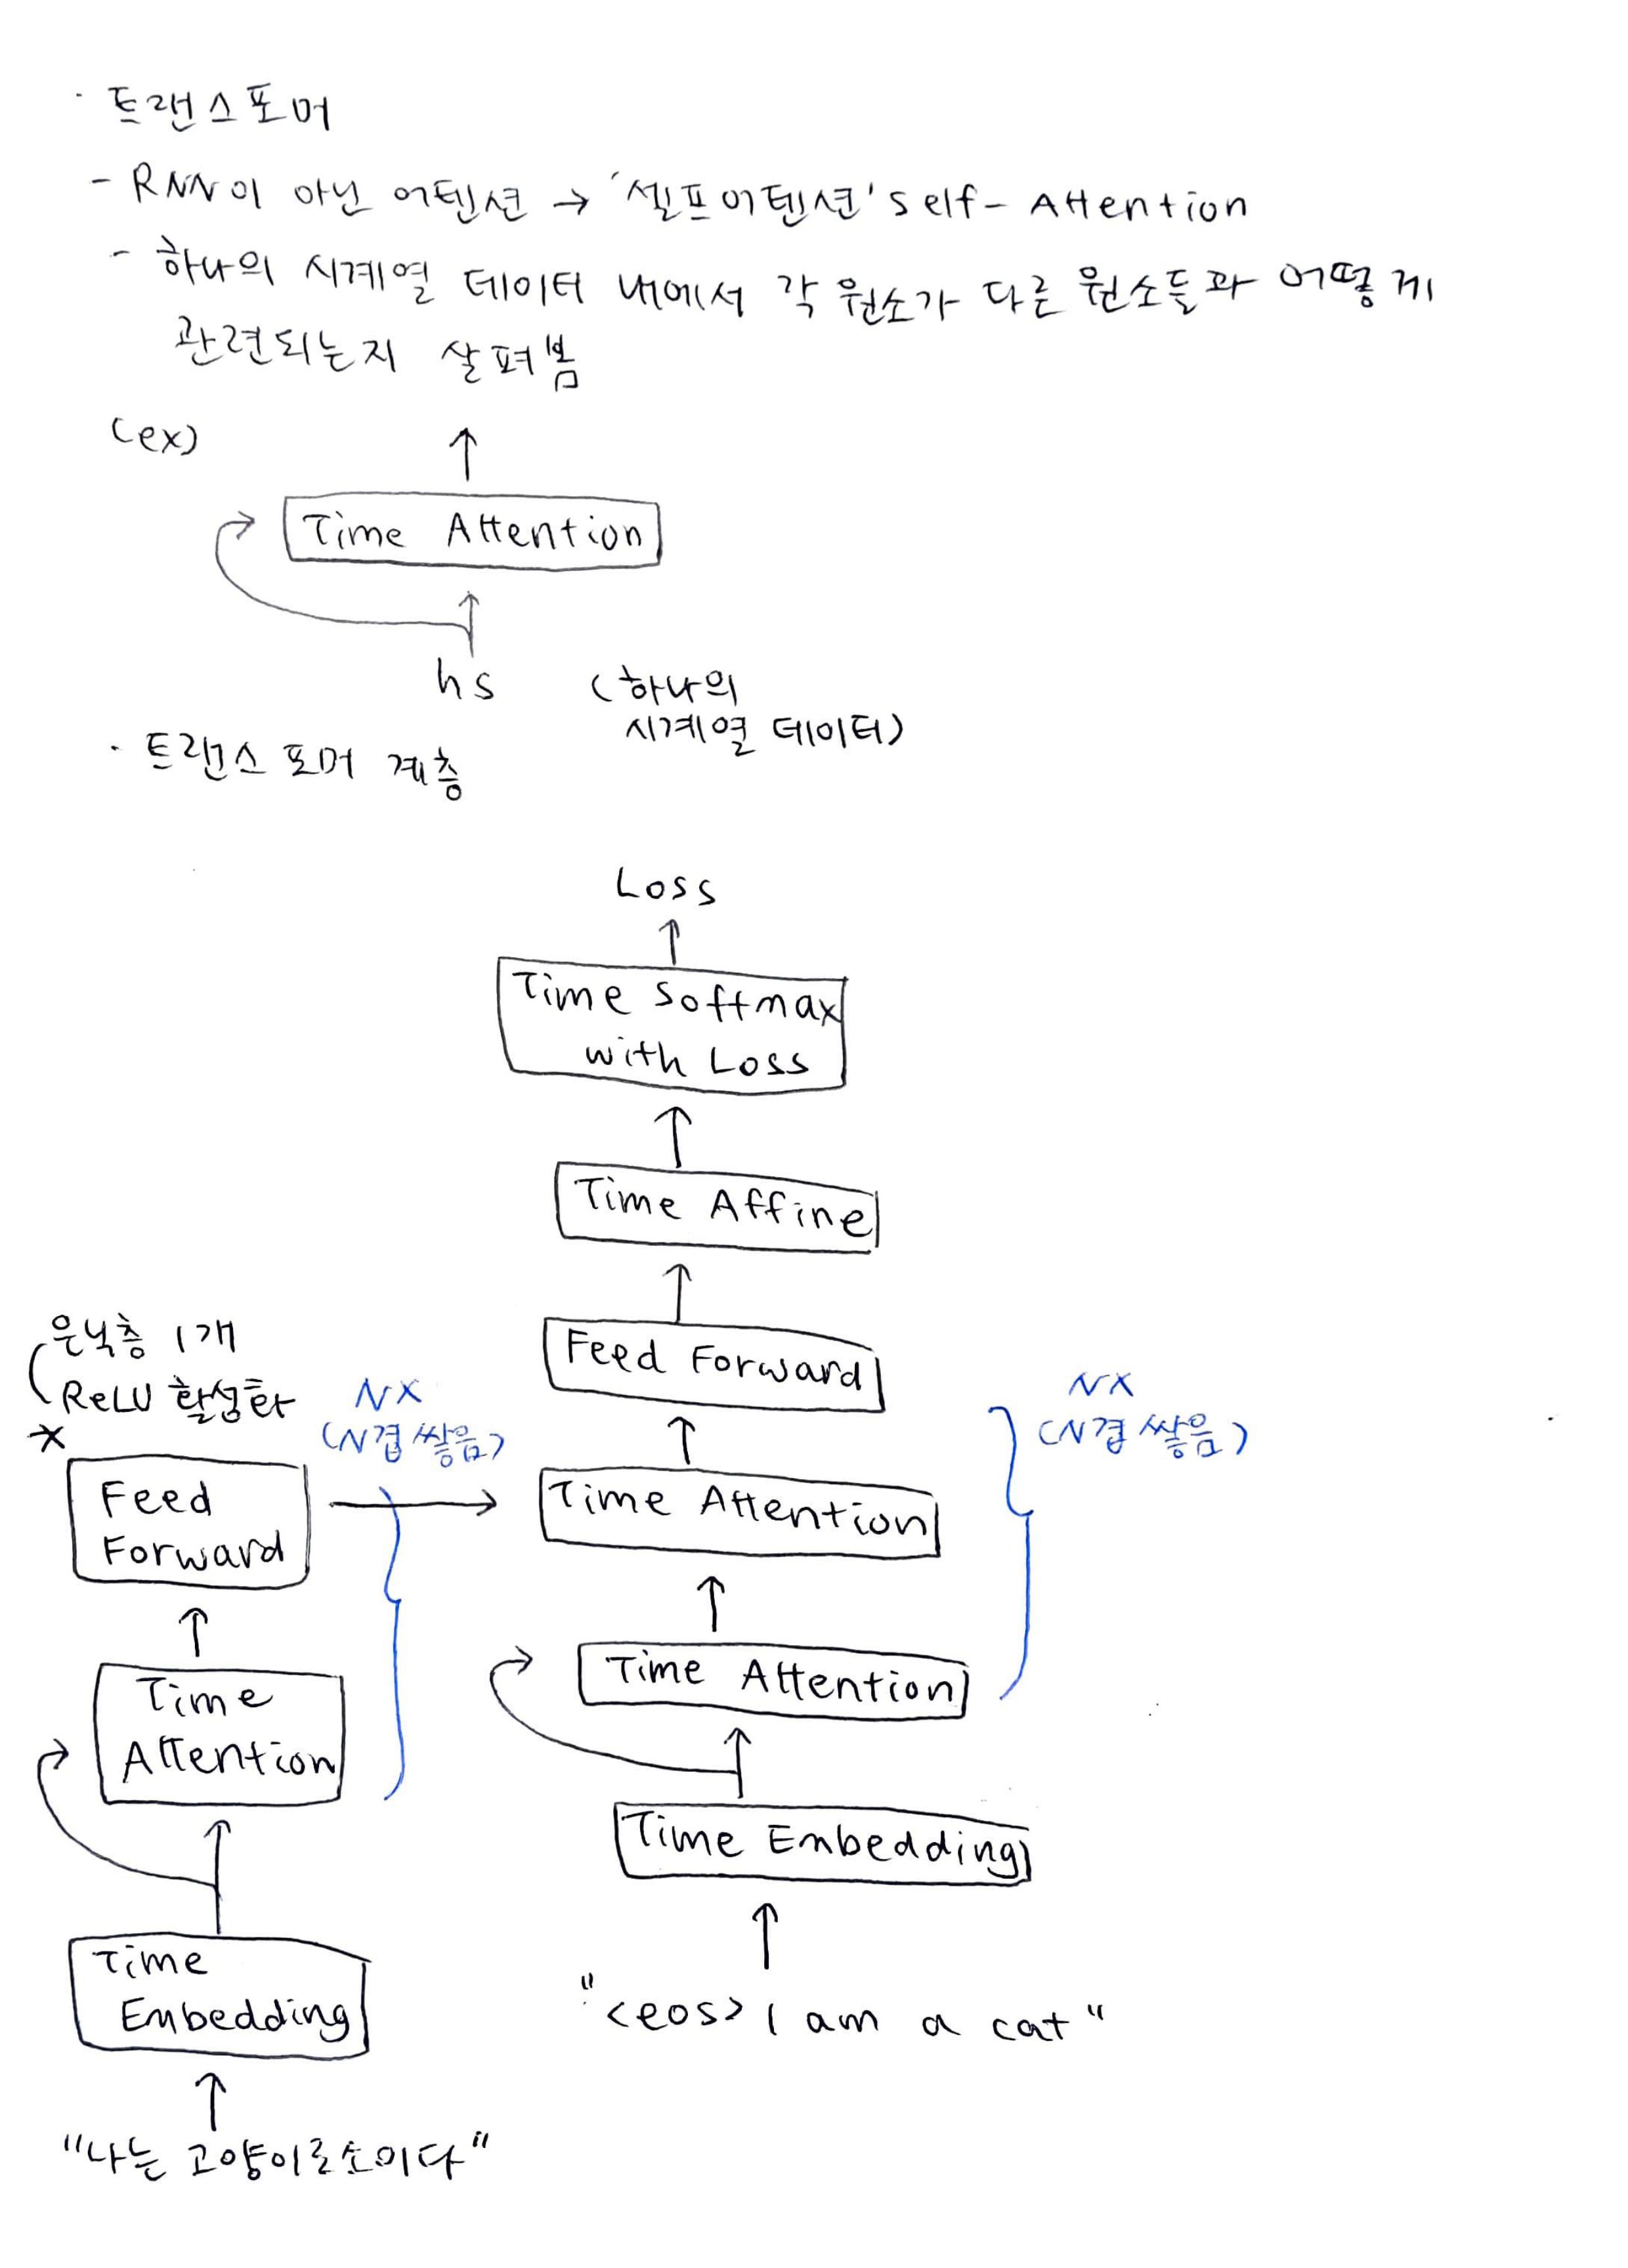 · 트랜스포머
- RNN이 아닌 어텐션 → '셀프어텐션' self-Attention
- 하나의 시계열 데이터 내에서 각 원소가 다른 원소들과 어떻게
관련되는지 살펴봄
(ex)
Time Attention
hs
(하나의
시계열 데이터)
· 트랜스포머 계층
Loss
Time Softmax
with Loss
Time Affine
Feed Forward
Time Attention
Time Attention
Time Embedding
"<eos> I am a cat"
NX
(N겹 쌓음)
은닉층 1개
ReLU 활성화
*
NX
(N겹 쌓음)
Feed
Forward
Time
Attention
Time
Embedding
"나는 고양이로소이다"